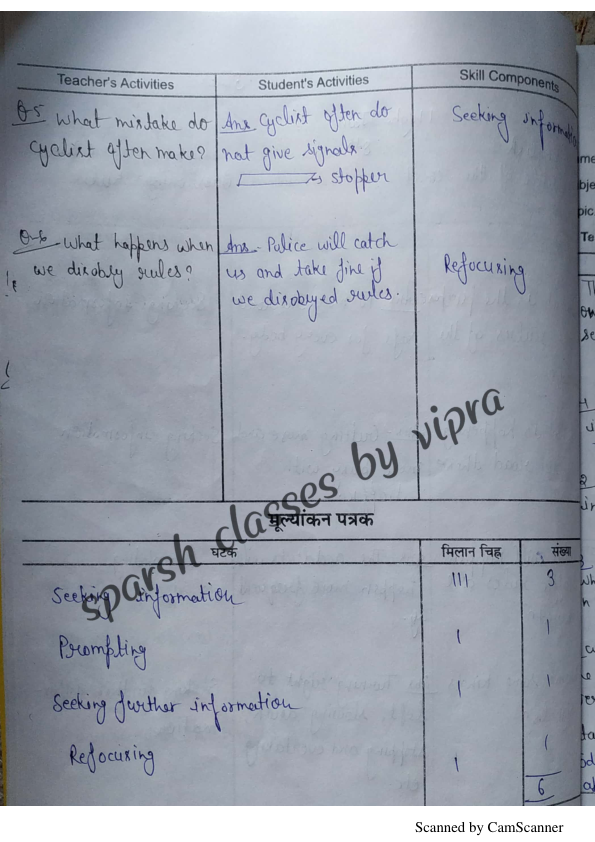 Teacher's Activities
Student's Activities
Skill Components
Q-5 What mistake do
cyclist often make?
Ans Cyclist often do
not give signals
stopper
Seeking information
Q-6 What happens when
we disobey rules?
Ans. Police will catch
us and take fine if
we disobeyed rules.
Refocusing
sparsh classes by vipra
मूल्यांकन पत्रक
घटक
मिलान चिह्न
संख्या
Seeking information
III
3
Prompting
I
1
Seeking further information
I
1
Refocusing
I
1
6
Scanned by CamScanner